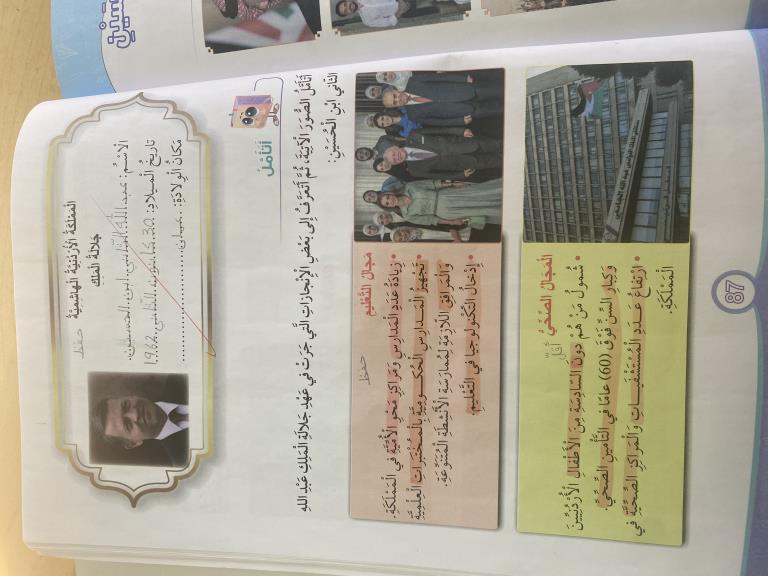 الْمَمْلَكَةُ الْأُرْدُنِيَّةُ الْهَاشِمِيَّةُ
جَلَالَةُ الْمَلِكِ
حفظ
الِاسْمُ: عبد الله الثاني ابن الحسين
تَارِيخُ الْمِيلَادِ: 30 كانون الثاني 1962
مَكَانُ الْوِلَادَةِ: عمان
أَتَأَمَّلُ
أَتَأَمَّلُ الصُّوَرَ الْآتِيَةَ، ثُمَّ أَتَعَرَّفُ إِلَى بَعْضِ الْإِنْجَازَاتِ الَّتِي جَرَتْ فِي عَهْدِ جَلَالَةِ الْمَلِكِ عَبْدِ اللهِ
الثَّانِي ابْنِ الْحُسَيْنِ:
مَجَالُ التَّعْلِيمِ
حفظ
• زِيَادَةُ عَدَدِ الْمَدَارِسِ وَمَرَاكِزِ مَحْوِ الْأُمِّيَّةِ فِي الْمَمْلَكَةِ.
• تَجْهِيزُ الْمَدَارِسِ الْحُكُومِيَّةِ بِالْمُخْتَبَرَاتِ الْعِلْمِيَّةِ
وَالْمَرَافِقِ اللَّازِمَةِ لِمُمَارَسَةِ الْأَنْشِطَةِ الْمُتَنَوِّعَةِ.
• إِدْخَالُ التِّكْنُولُوجْيَا فِي التَّعْلِيمِ.
الْمَجَالُ الصِّحِّيُّ
أقل
• شُمُولُ مَنْ هُمْ دُونَ السَّادِسَةِ مِنَ الْأَطْفَالِ الْأُرْدُنِيِّينَ
وَكِبَارِ السِّنِّ فَوْقَ (60) عَامًا فِي التَّأْمِينِ الصِّحِّيِّ.
• ارْتِفَاعُ عَدَدِ الْمُسْتَشْفَيَاتِ وَالْمَرَاكِزِ الصِّحِّيَّةِ فِي
الْمَمْلَكَةِ.
87